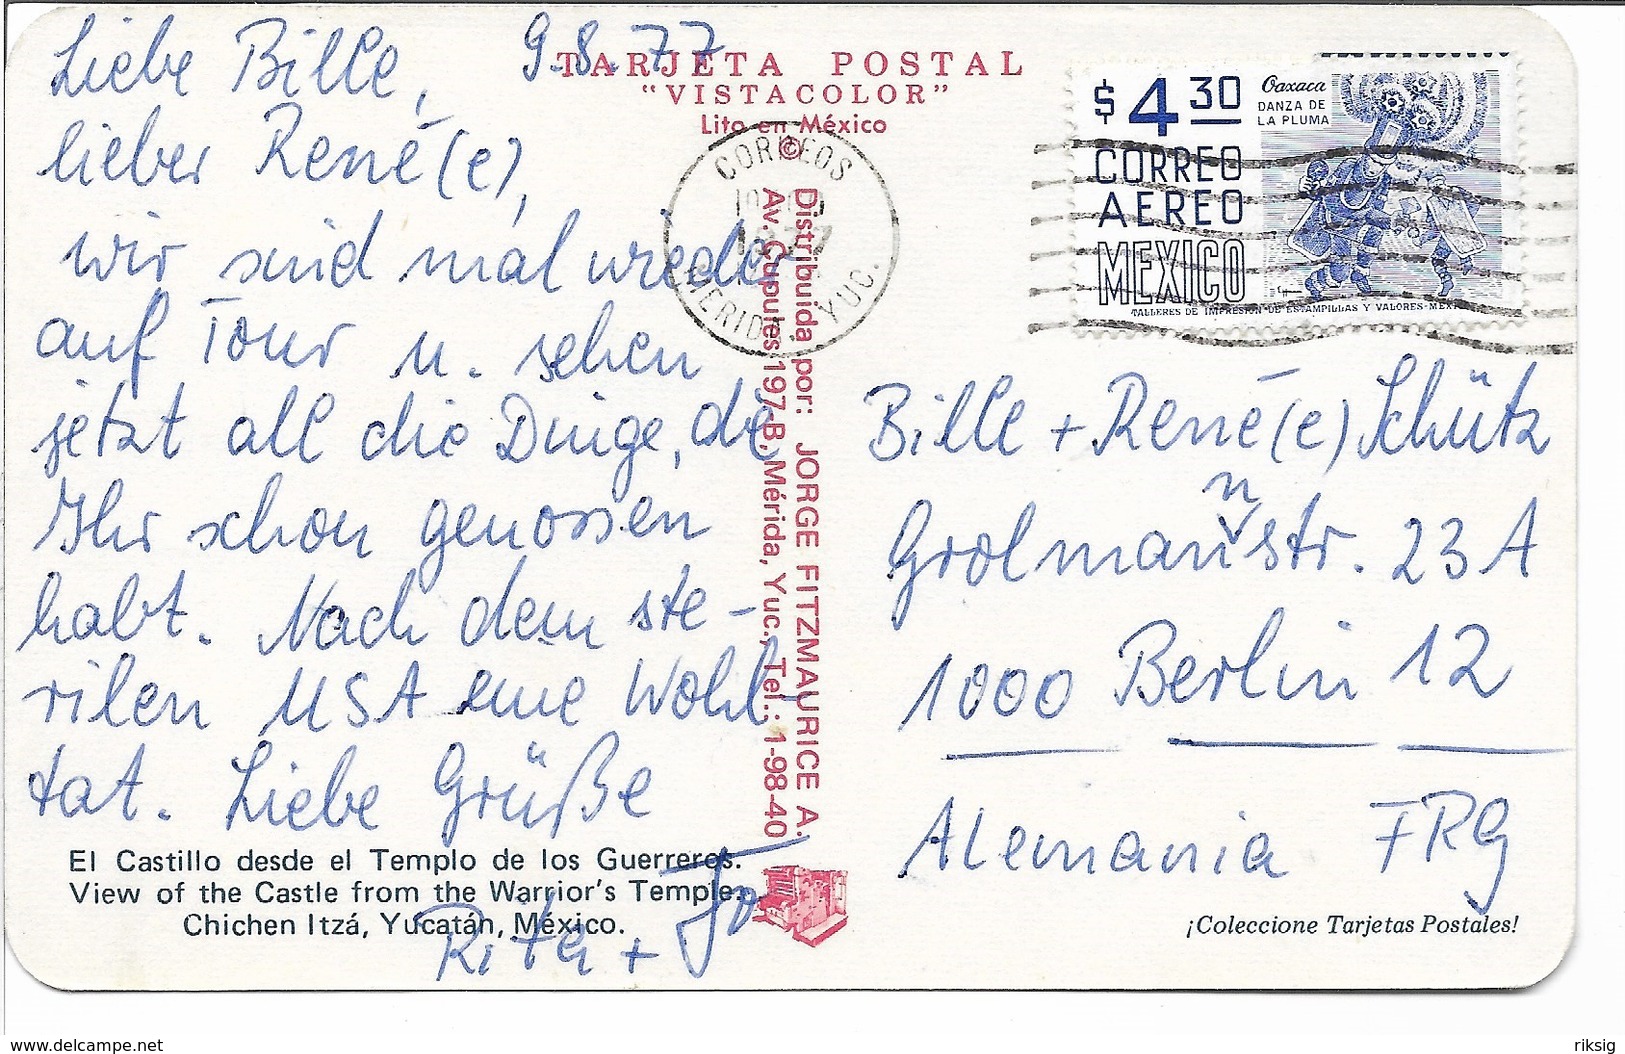 Liebe Bille, 9.8.77
lieber René(e),
wir sind mal wieder
auf Tour u. sehen
jetzt all die Dinge, die
Ihr schon genossen
habt. Nach dem ste-
rilen USA eine Wohl-
tat. Liebe Grüße
Rita + Jo
El Castillo desde el Templo de los Guerreros.
View of the Castle from the Warrior's Temple.
Chichen Itzá, Yucatán, México.
TARJETA POSTAL
"VISTACOLOR"
Lito en México
©
Distribuida por: JORGE FITZMAURICE A.
Av. Cupules 197-B, Mérida, Yuc., Tel.: 1-98-40
CORREOS
1977
MERIDA, YUC.
$4.30
CORREO
AEREO
MEXICO
Oaxaca
DANZA DE
LA PLUMA
TALLERES DE IMPRESION DE ESTAMPILLAS Y VALORES-MEXICO
Bille + René(e) Schütz
n
Grolmanstr. 23 A
1000 Berlin 12
Alemania FRG
¡Coleccione Tarjetas Postales!
www.delcampe.net
riksig